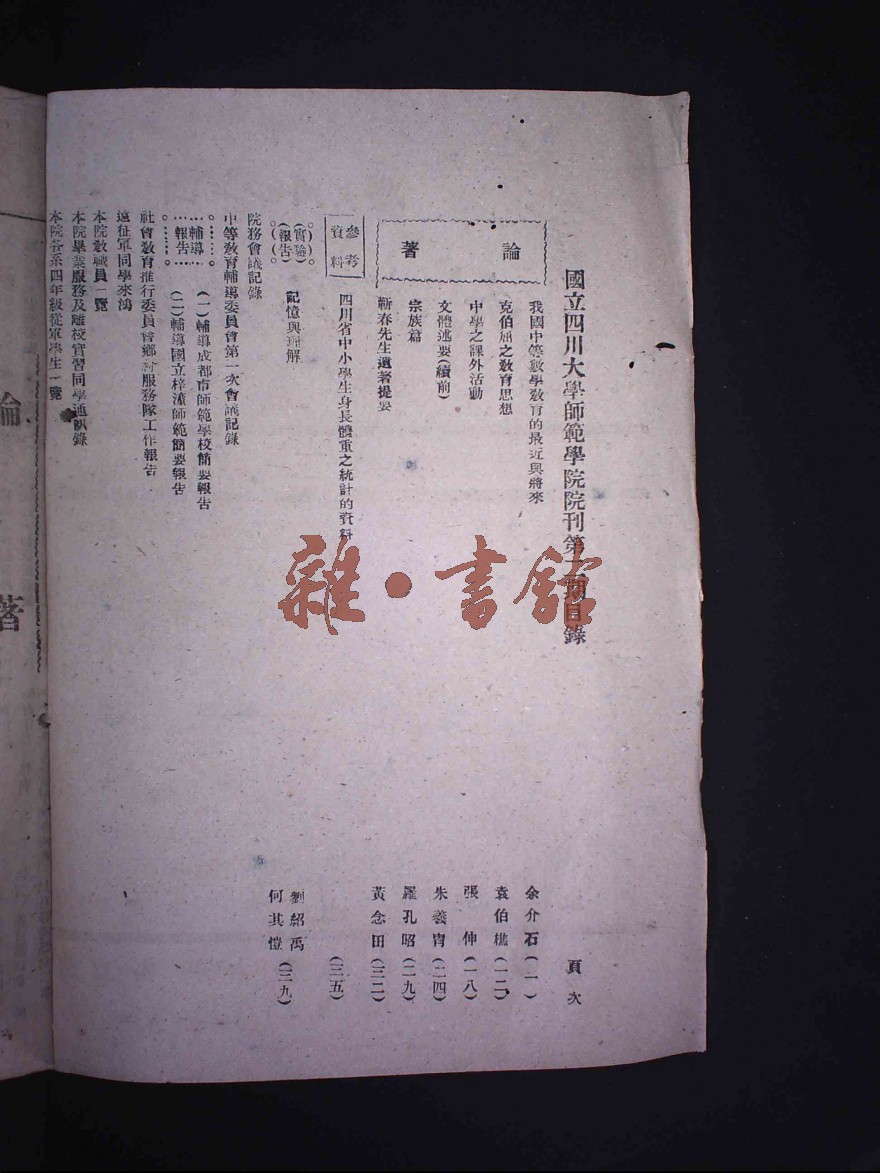 國立四川大學師範學院院刊第二期目錄
頁次
論著
我國中等數學教育的最近與將來 余介石(一)
克伯屈之教育思想 袁伯樵(一二)
中學之課外活動 張 伸(一八)
文體述要(續前) 朱羲冑(二四)
宗族篇 羅孔昭(二九)
蘄春先生遺著提要 黃念田(三二)
參考資料
四川省中小學生身長體重之統計的資料 (三五)
(實驗)
(報告)
記憶與理解 劉紹禹 何其愷(三九)
院務會議記錄
中等教育輔導委員會第一次會議記錄
輔導
報告
(一)輔導成都市師範學校簡要報告
(二)輔導國立梓潼師範簡要報告
社會教育推行委員會鄉村服務隊工作報告
遠征軍同學來鴻
本院教職員一覽
本院畢業服務及離校實習同學通訊錄
本院各系四年級從軍學生一覽
論著
雜·書館